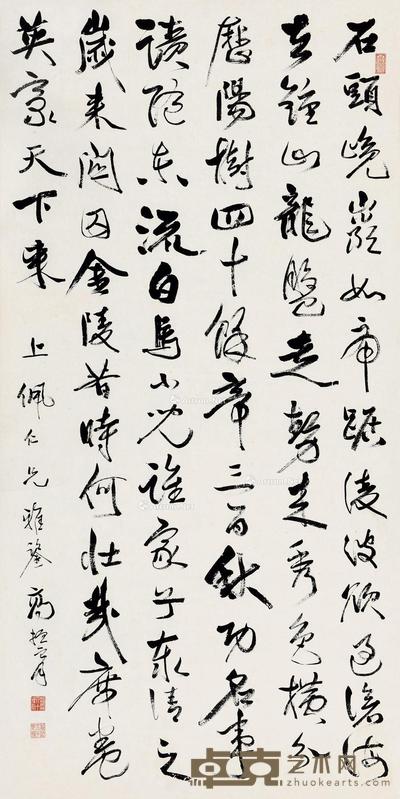 石頭巉巖如虎踞凌波欲過滄海
去鐘山龍盤走勢來秀色橫分
歷陽樹四十餘帝三百秋功名事
蹟隨東流白馬小兒誰家子泰清之
歲來關囚金陵昔時何壯哉席卷
英豪天下來
上佩仁兄雅鑒 高
卓克艺术网
www.zhuokearts.com